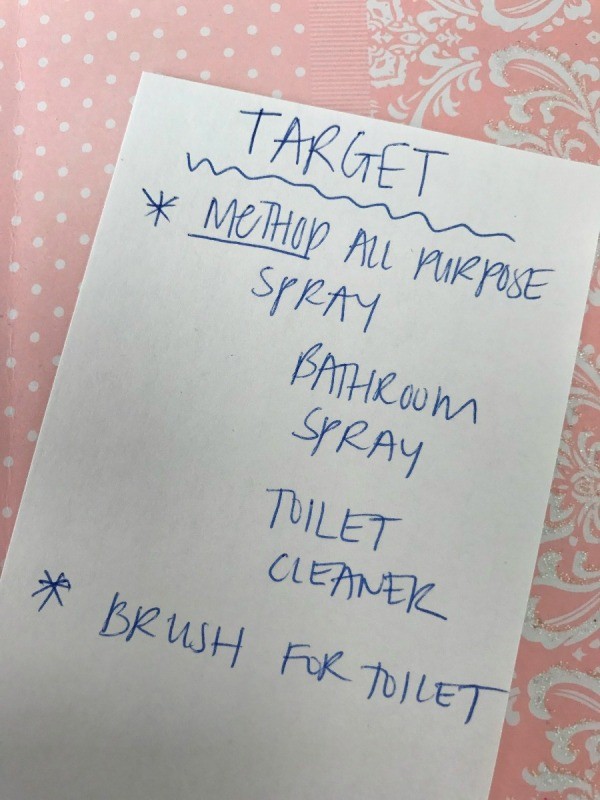 TARGET
* METHOD ALL PURPOSE
SPRAY
BATHROOM
SPRAY
TOILET
CLEANER
* BRUSH FOR TOILET